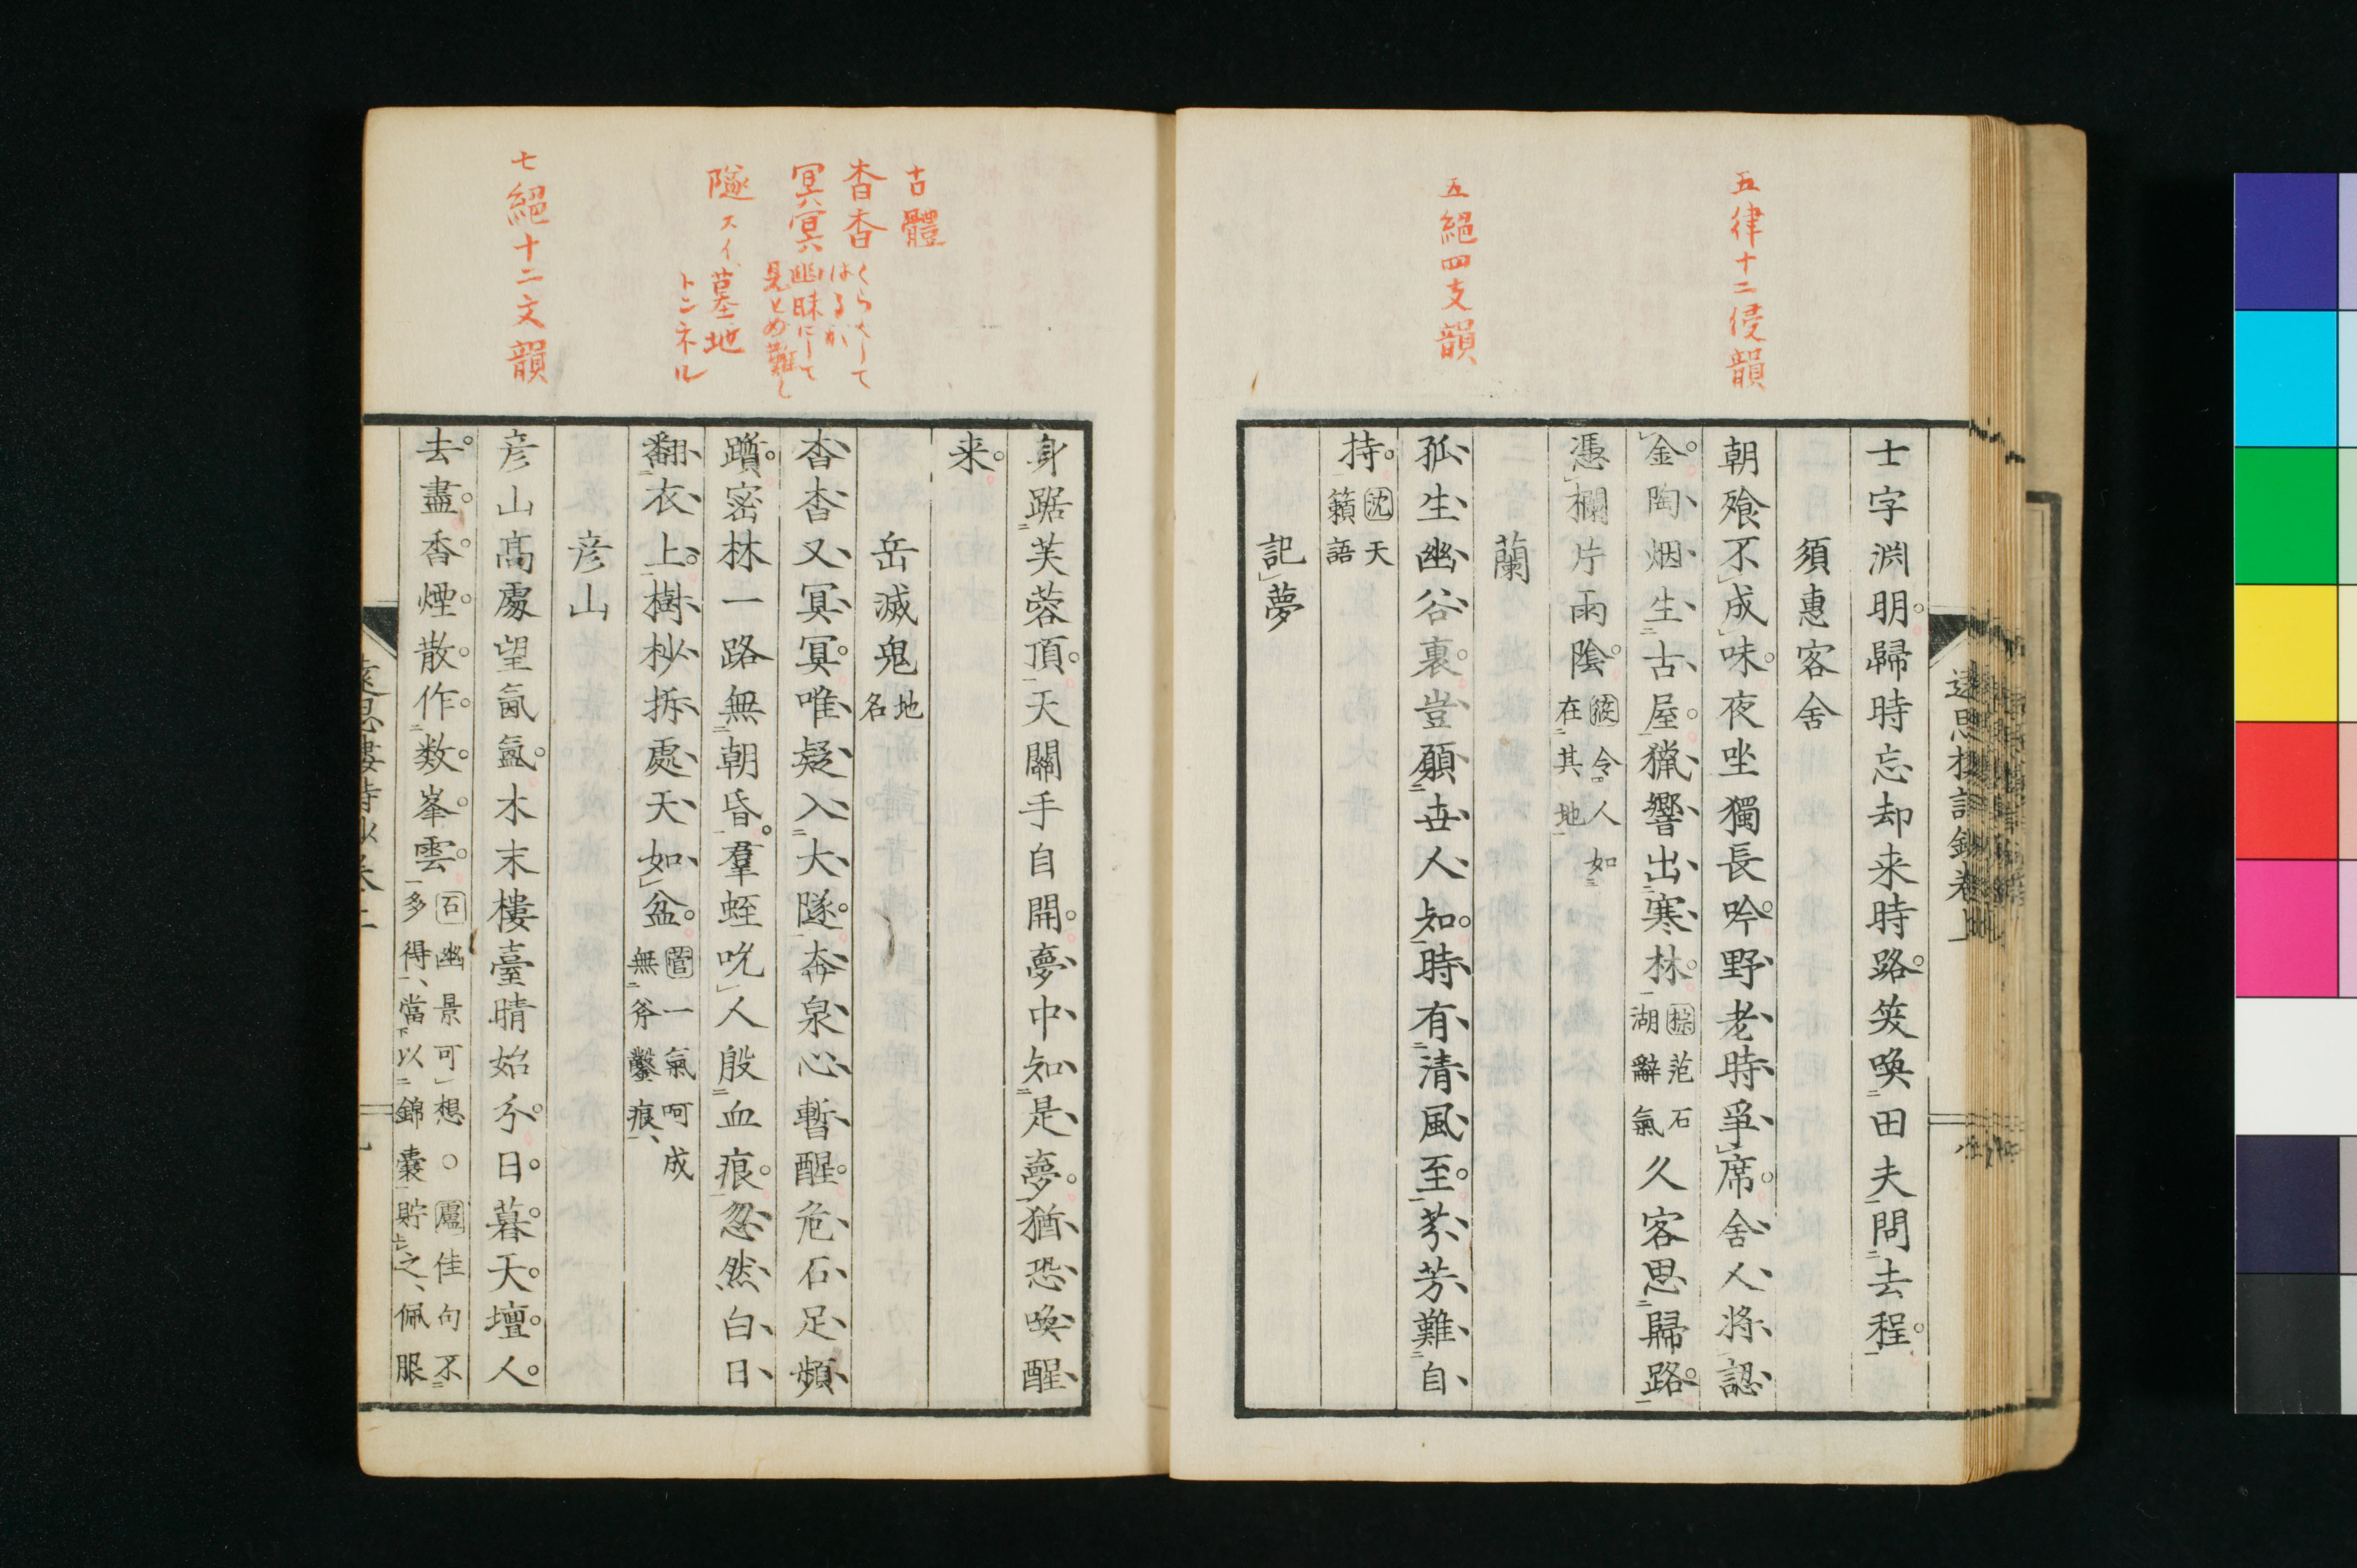 五律十二侵韻
五絕四支韻
士字淵明歸時忘却来時路笑喚田夫問去程
須惠客舍
朝飱不成味夜坐獨長吟野老時爭席舍人將認
金陶烟生古屋獵響出寒林
范石
湖辭氣
久客思歸路
憑欄片雨陰
令人如
在其地
蘭
孤生幽谷裏豈願世人知時有清風至芬芳難自
持
沈天
籟語
記夢
古體
杳杳
くらくして
はるか
冥冥
幽昧にして
見とめ難し
隧スイ
墓地
トンネル
七絕十二文韻
身踞芙蓉頂天關手自開夢中知是夢猶恐喚醒
来
岳滅鬼
地
名
杳杳又冥冥唯疑入大隧奔泉心暫醒危石足頻
躓密林一路無朝昏羣蛭吮人殷血痕忽然白日
翻衣上樹杪拆處天如盆
一氣呵成
無斧鑿痕
彦山
彦山髙處望氤氳木末樓臺晴始分日暮天壇人
去盡香煙散作数峯雲
石幽景可想○盧佳句不
多得當以錦囊貯之佩服